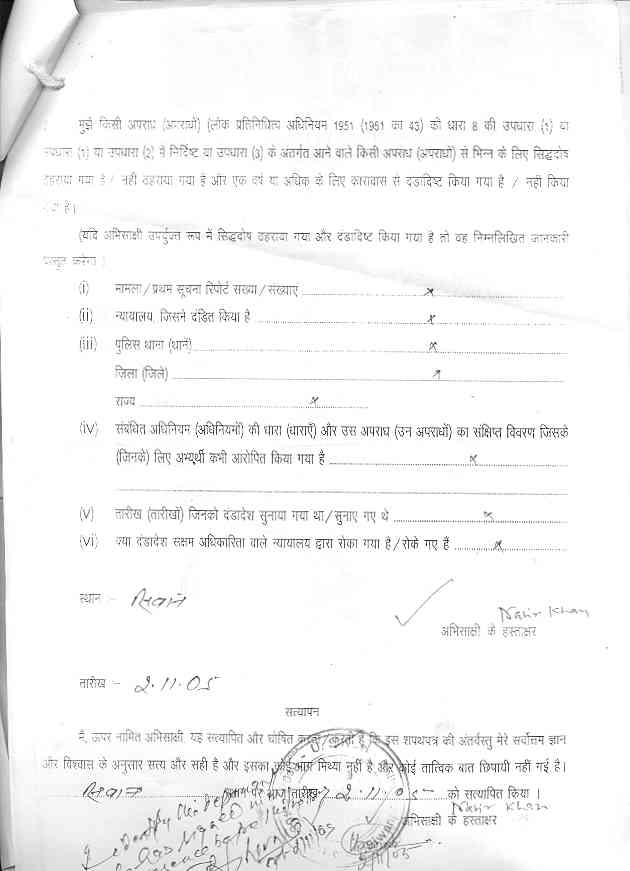 मुझे किसी अपराध (अपराधों) (लोक प्रतिनिधित्व अधिनियम 1951 (1951 का 43) की धारा 8 की उपधारा (1) या
उपधारा (1) या उपधारा (2) में निर्दिष्ट या उपधारा (3) के अंतर्गत आने वाले किसी अपराध (अपराधों) से भिन्न के लिए सिद्धदोष
ठहराया गया है / नहीं ठहराया गया है और एक वर्ष या अधिक के लिए कारावास से दंडादिष्ट किया गया है / नहीं किया
गया है।
(यदि अभिसाक्षी उपर्युक्त रूप में सिद्धदोष ठहराया गया और दंडादिष्ट किया गया है तो वह निम्नलिखित जानकारी
प्रस्तुत करेगा
(i) मामला/प्रथम सूचना रिपोर्ट संख्या/संख्याएं ......... x
(ii) न्यायालय, जिसने दंडित किया है ......... x
(iii) पुलिस थाना (थानें) ......... x
जिला (जिले) ......... x
राज्य ......... x
(iv) संबंधित अधिनियम (अधिनियमों) की धारा (धाराएँ) और उस अपराध (उन अपराधों) का संक्षिप्त विवरण जिसके
(जिनके) लिए अभ्यर्थी कभी आरोपित किया गया है ......... x
(v) तारीख (तारीखों) जिनको दंडादेश सुनाया गया था/सुनाए गए थे ......... x
(vi) क्या दंडादेश सक्षम अधिकारिता वाले न्यायालय द्वारा रोका गया है/रोके गए हैं ......... x
स्थान :- सिवान
Nasir Khan
अभिसाक्षी के हस्ताक्षर
तारीख :- 2.11.05
सत्यापन
मैं, ऊपर नामित अभिसाक्षी, यह सत्यापित और घोषित करता/करती है कि इस शपथपत्र की अंतर्वस्तु मेरे सर्वोत्तम ज्ञान
और विश्वास के अनुसार सत्य और सही है और इसका कोई भाग मिथ्या नहीं है और कोई तात्विक बात छिपायी नहीं गई है।
सिवान पर आज तारीख 2.11.05 को सत्यापित किया ।
Nasir Khan
अभिसाक्षी के हस्ताक्षर